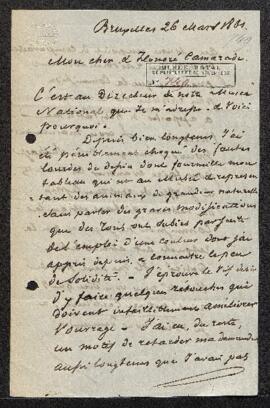 Bruxelles 26 Mars 1881.
Mon cher & Honoré Camarade
MUSÉE ROYAL
C'est au Directeur de notre Musée
National que je m'adresse & voici
pourquoi.
Depuis bien longtems, j'ai
été péniblement choqué des fautes
lourdes de dessin dont fourmille mon
tableau qui est au Musée & représen
tant des animaux de grandeur naturelle
sans parler des graves modifications
que des tons ont subies par suite
de l'emploi d'une couleur dont j'ai
appris depuis, à connaitre le peu
de Solidité. – J'éprouve le vif désir
d'y faire quelques retouches qui
doivent infailliblement améliorer
l'ouvrage – J'ai eu, du reste
un motif de retarder ma demande
aussi longtems que j'avais pas